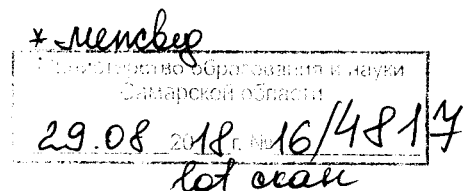 * межвед
Министерство образования и науки
Самарской области
29.08 2018 г. № 16/4817
от скан